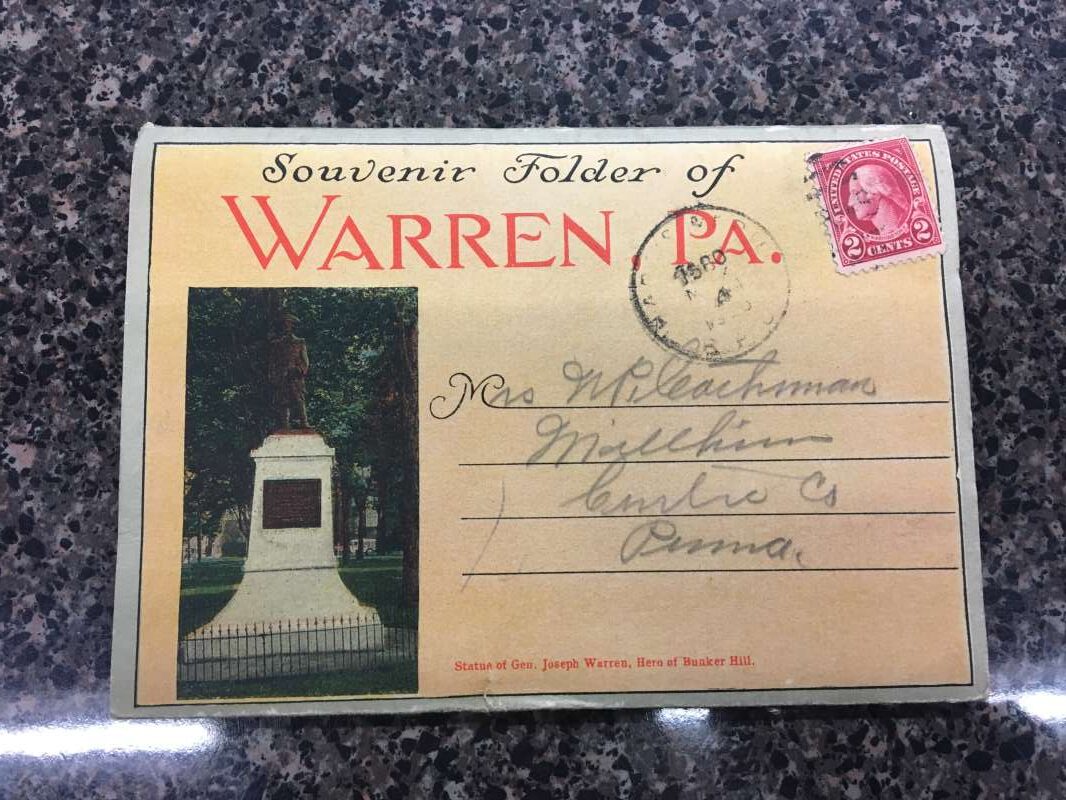 Souvenir Folder of
WARREN, PA.
UNITED STATES POSTAGE
2 CENTS 2
Mrs Cochman
Millhim
Centre Co
Penna.
Statue of Gen. Joseph Warren, Hero of Bunker Hill.